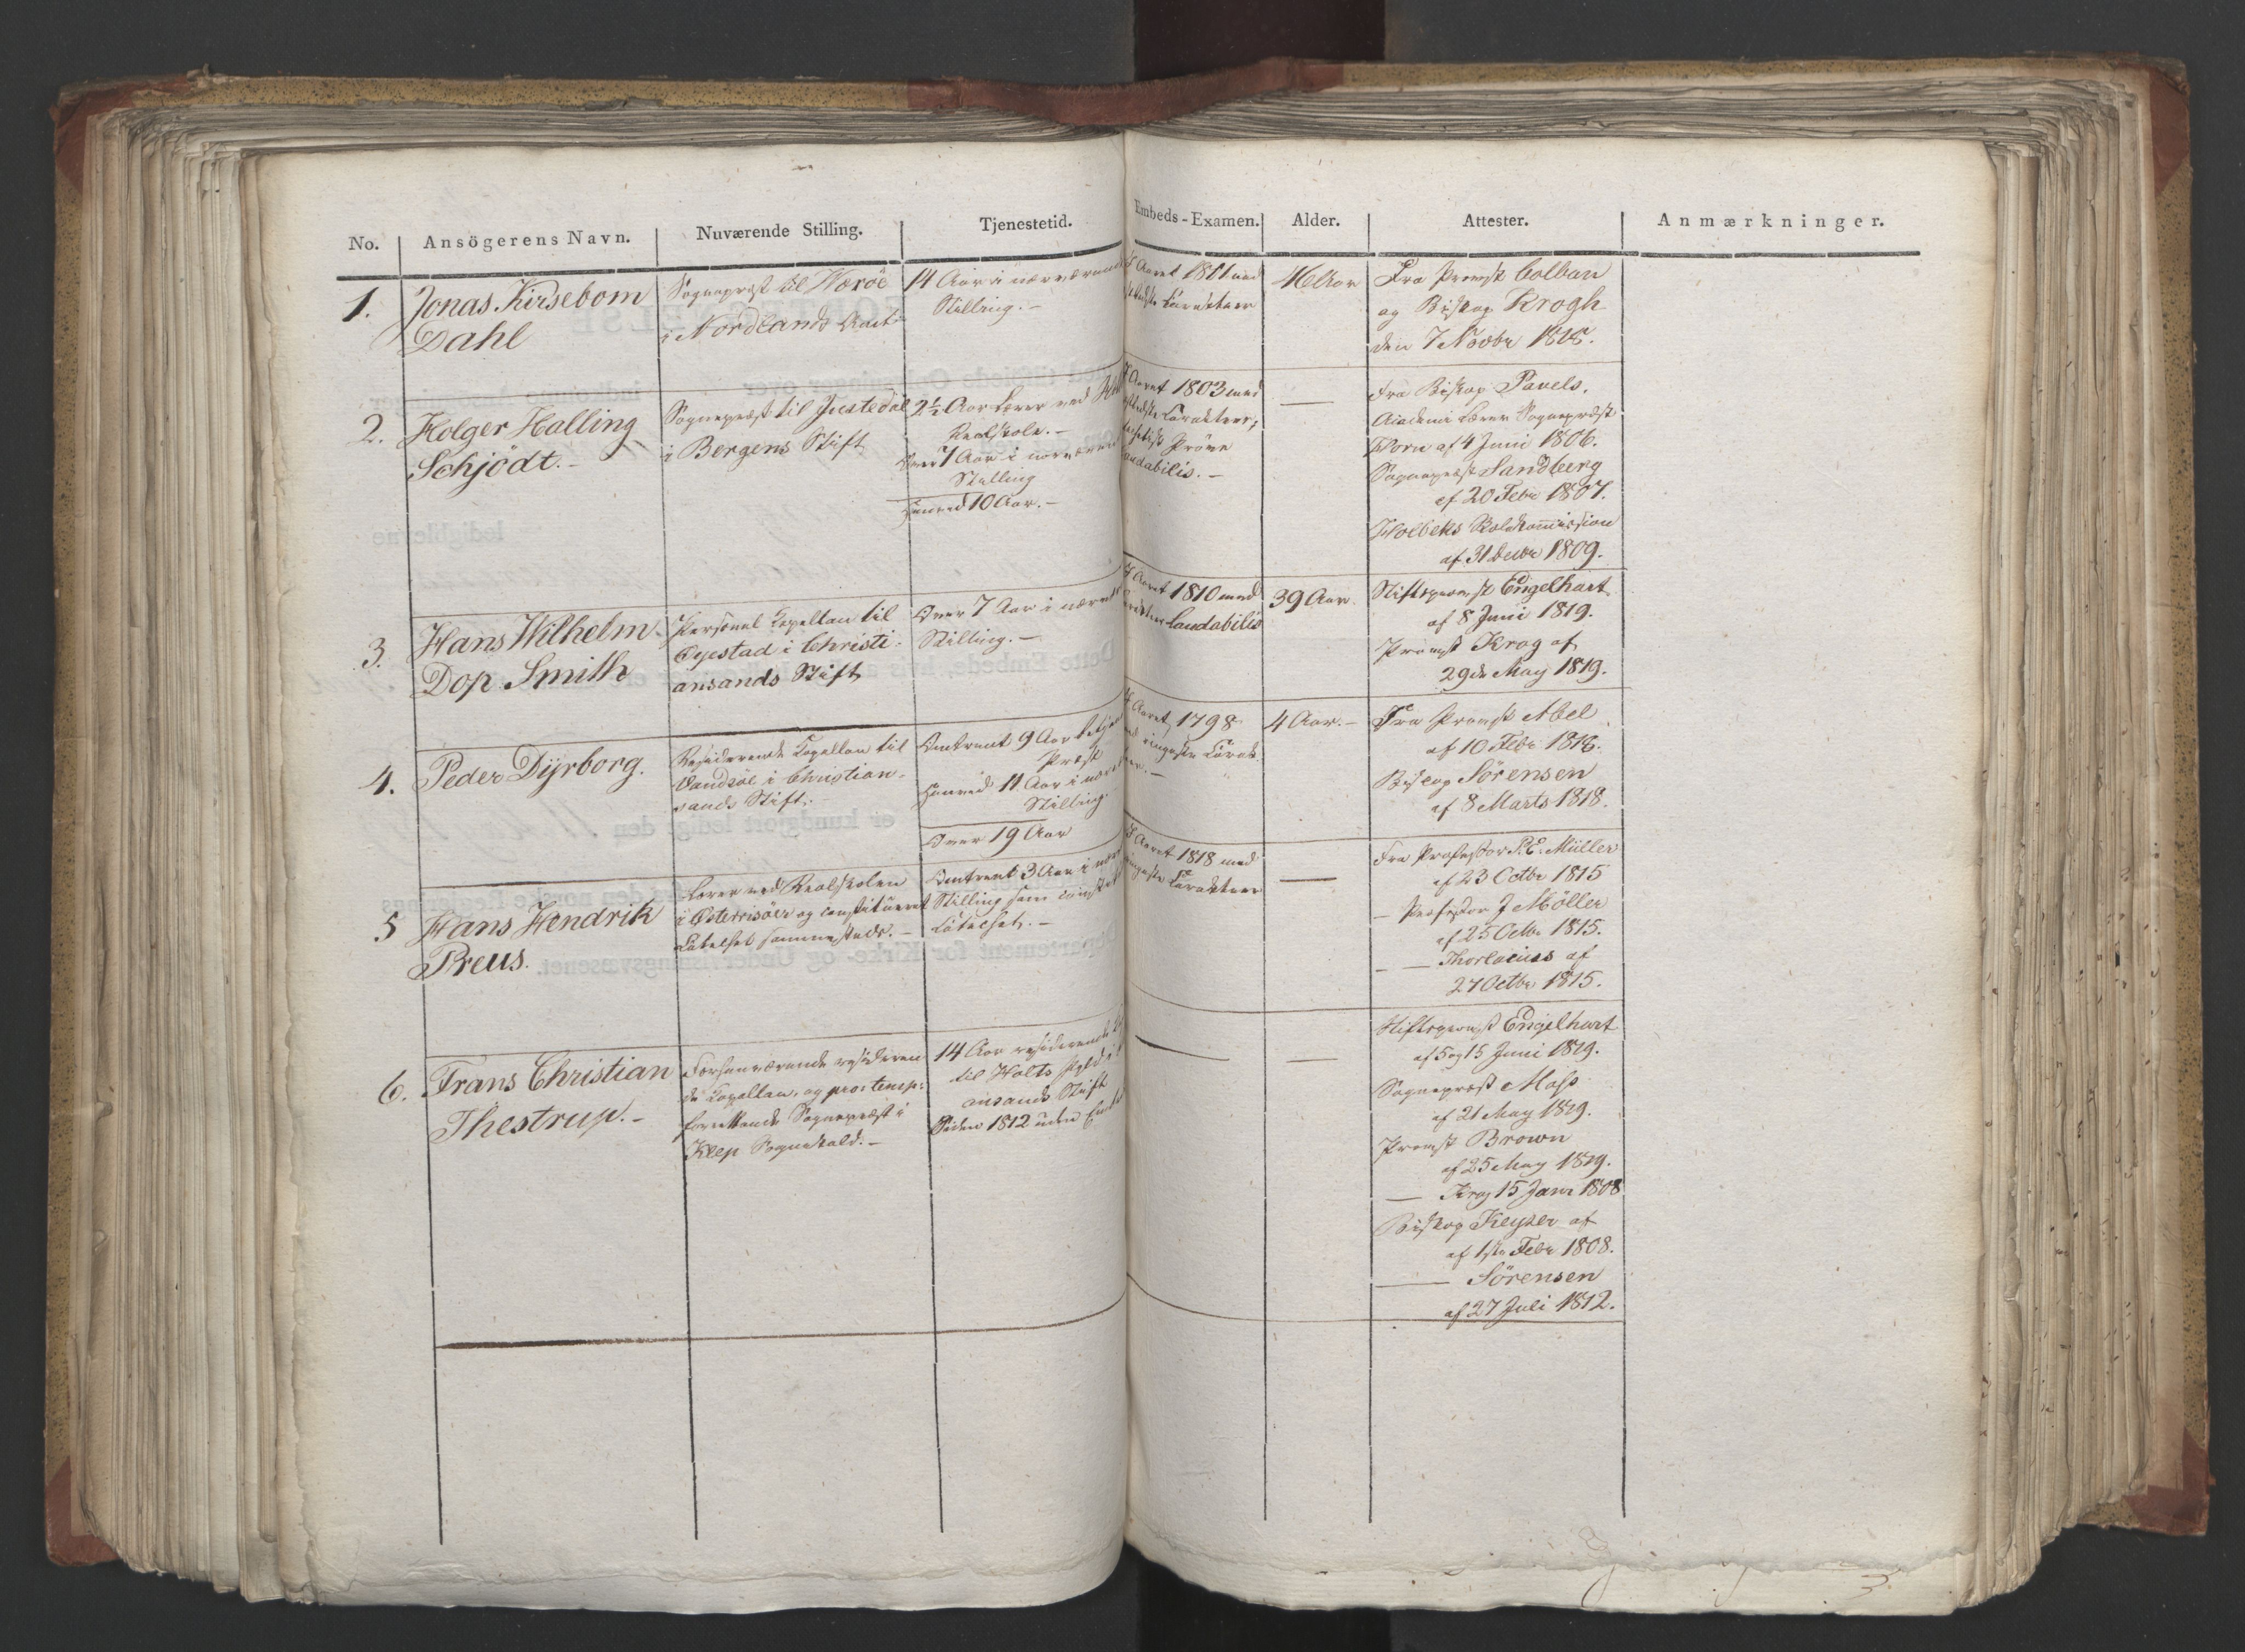 No. Ansögerens Navn. Nuværende Stilling. Tjenestetid. Embeds-Examen. Alder. Attester. Anmærkninger.
1. Jonas Kirsebom
Dahl
Sognepræst til Nærøe
i Nordlands Amt
14 Aar i nærværende
Stilling. –
Aaret 1811 med
bedste Karakteer
Fra Provst Colban
og Biskop Krogh
den 7 Novbr 1818.
2. Holger Halling
Schjödt. –
Sognepræst til Justedal
i Bergens Stift
2½ Aar Lærer ved
Realskole. –
Over 7 Aar i nærværende
Stilling
10 Aar. –
Aaret 1803 med
bedste Karakteer;
Pröve
laudabilis. –
—
Fra Biskop Pavels.
Academie Lærer Sognepræst
Horn af 4 Juni 1806.
Sognepræst Sandberg
af 20 Febr 1807.
Holbeks Skolekommission
af 31 Decbr 1809.
3. Hans Wilhelm
Dop Smith
Personel Kapellan til
Öyestad i Christi-
ansands Stift
Over 7 Aar i nærv
Stilling. –
Aaret 1810 med
Laudabilis
39 Aar
Stiftsprovst Engelhart
af 8 Juni 1819.
Provst Krog af
29de May 1819.
4. Peder Dyrborg.
Residerende Kapellan til
i Christian-
sands Stift.
Omtrent 9 Aar
Præst
11 Aar i nærv
Stilling.
Over 19 Aar
Aaret 1798
ringeste Karak-
teer. –
4 Aar. –
Fra Provst Abel
af 10 Febr 1818.
Biskop Sörensen
af 8 Marts 1818.
5 Hans Hendrik
Preus.
Lærer ved Realskolen
i Österrisöer og constitueret
Kateket sammesteds. –
Omtrent 3 Aar i nærv
Stilling som const
Kateket. –
Aaret 1818 med
ringeste Karakteer
—
Fra Professor P. E. Müller
af 23 Octbr 1815
– Professor J Möller
af 25 Octbr 1815.
– — Thorlacius af
27 Octbr 1815.
6. Frans Christian
Thestrup. –
Forhenværende resideren-
de Kapellan, og pro: temp:
forrettende Sognepræst i
Klep Sognekald. –
14 Aar residerende
til Holts
ansands Stift
Siden 1812 uden
—
—
Stiftsprovst Engelhart
af 5 og 15 Juni 1819.
Sognepræst Moss
af 21 May 1819.
Provst Brown
af 25 May 1819.
— Krog 15 Janr 1808
Biskop Keyser af
af 1ste Febr 1808.
— Sörensen
af 27 Juli 1812.